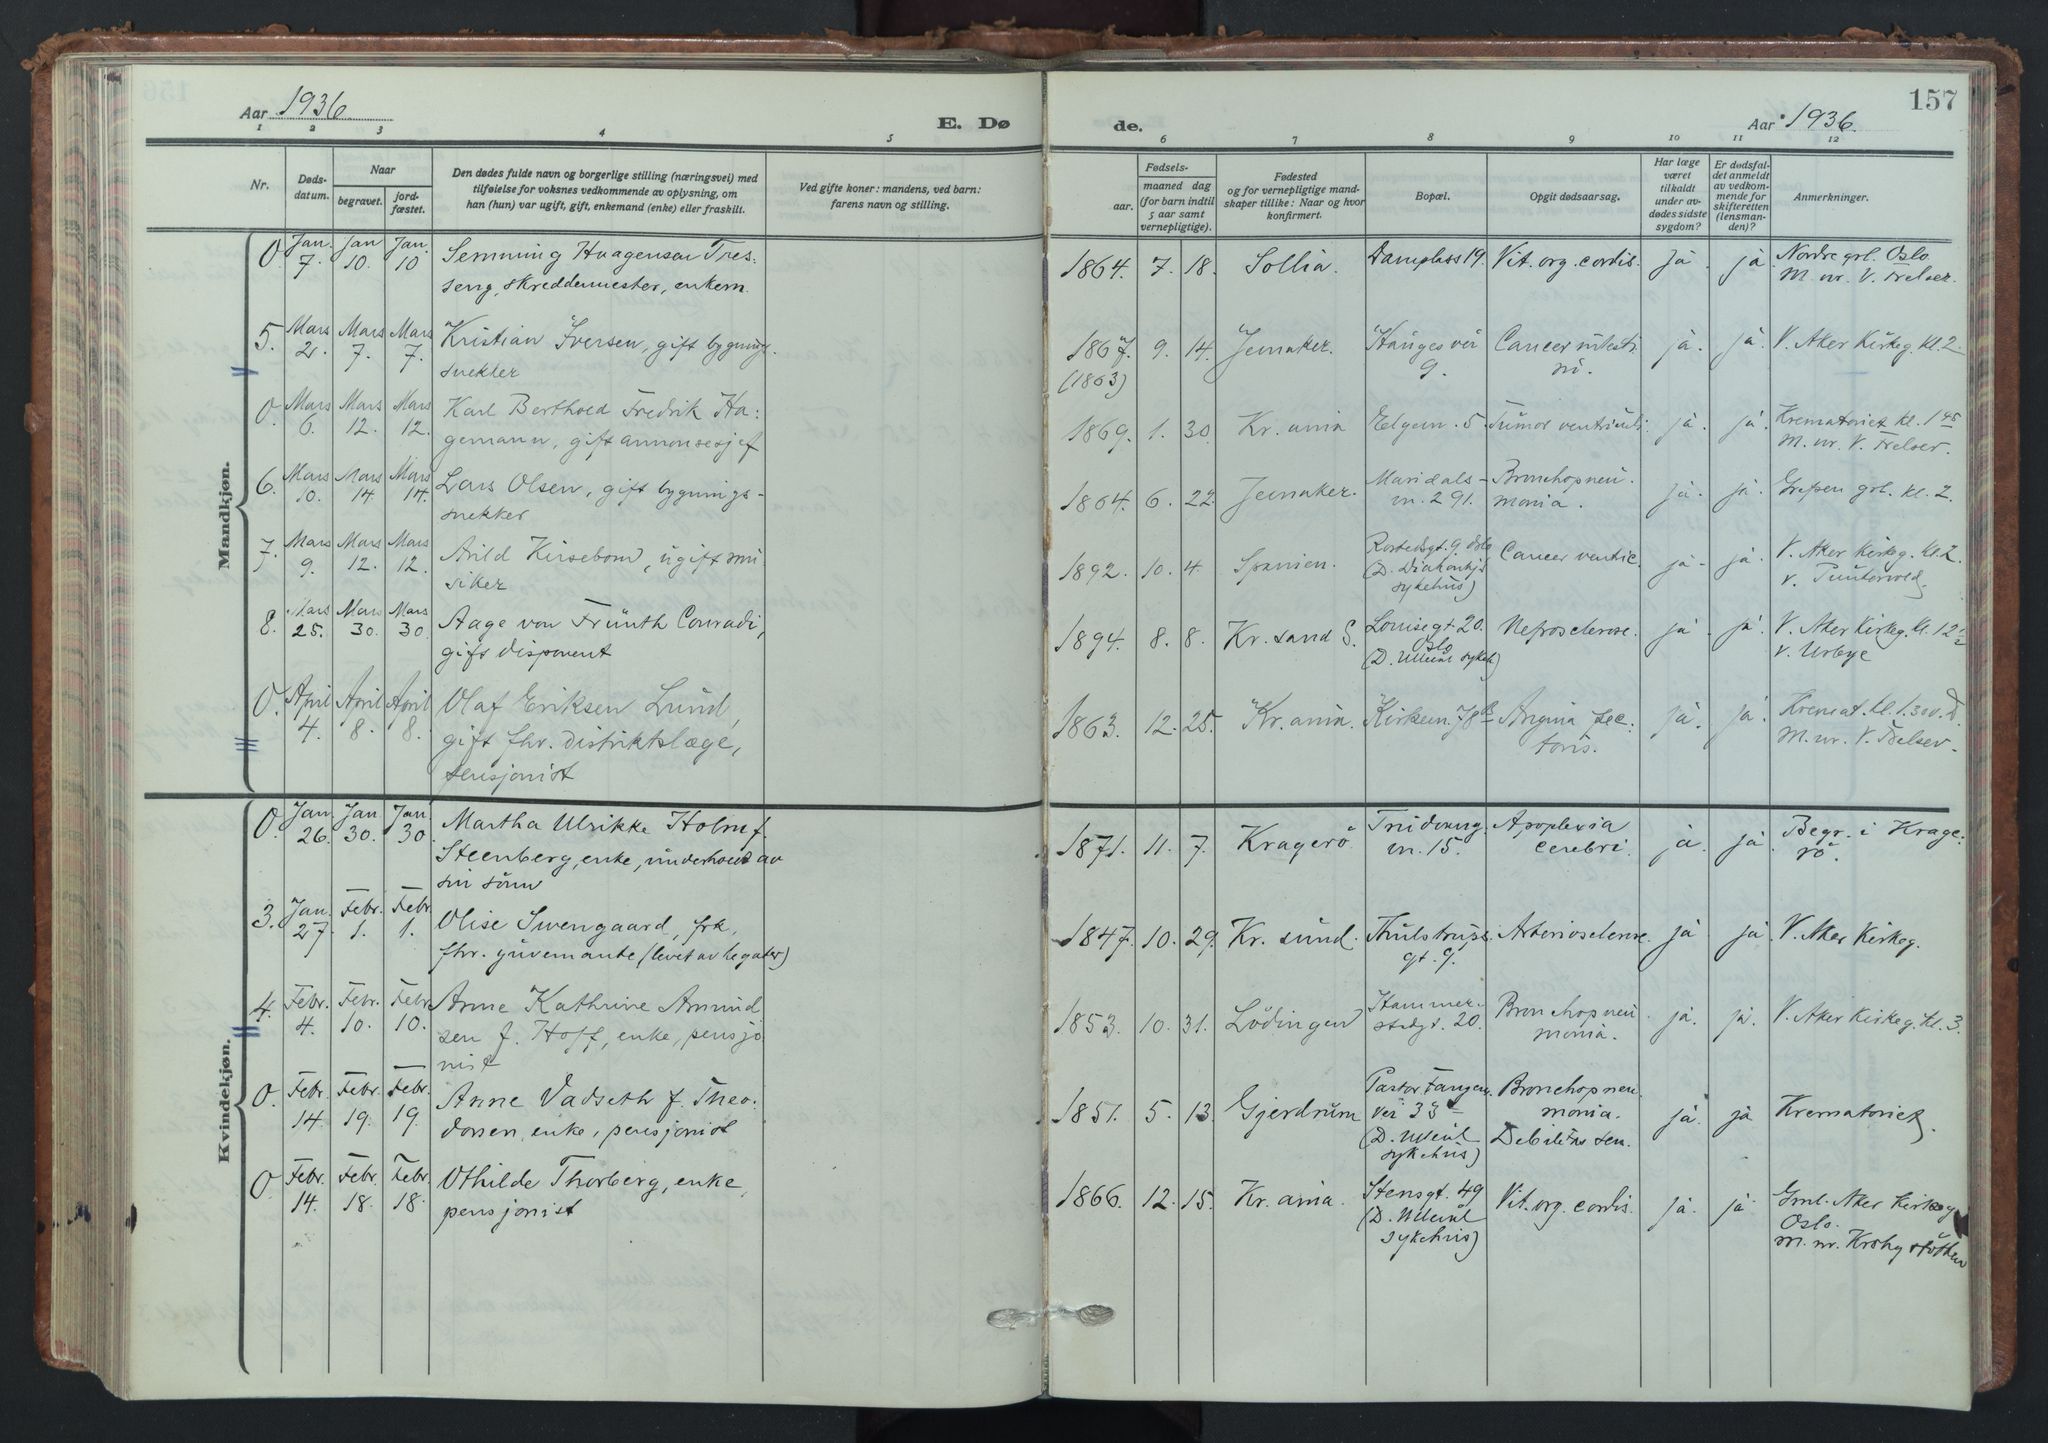 Aar 1936.
E. Døde.
Aar 1936.
157
1 2 3 4 5 6 7 8 9 10 11 12
Nr.
Døds-
datum.
Naar
begravet.
jord-
fæstet.
Den dødes fulde navn og borgerlige stilling (næringsvei) med
tilføielse for voksnes vedkommende av oplysning, om
han (hun) var ugift, gift, enkemand (enke) eller fraskilt.
Ved gifte koner: mandens, ved barn:
farens navn og stilling.
Fødsels-
aar.
maaned dag
(for barn indtil
5 aar samt
vernepligtige).
Fødested
og for vernepligtige mand-
skaper tillike: Naar og hvor
konfirmert.
Bopæl.
Opgit dødsaarsag.
Har læge
været
tilkaldt
under av-
dødes sidste
sygdom?
Er dødsfal-
det anmeldt
av vedkom-
mende for
skifteretten
(lensman-
den)?
Anmerkninger.
Mandkjøn.
0. Jan 7. Jan 10. Jan 10 Semming Haagensen Tres-
seng, skreddemester, enkem.
1864. 7. 18. Sollia. Damplass 19. Vit. org. cordis. Ja. ja. Nordre grl. Oslo
M. nr. V. Frelser.
5. Mars 2. Mars 7. Mars 7. Kristian Iversen, gift bygnings-
snekker
1867. 9. 14. Jevnaker. Hauges vei Cancer intesti ja. ja. V. Aker Kirkeg. kl. 2
(1863) 9. ni.
0. Mars 6. Mars 12. Mars 12. Karl Berthold Fredrik Ha-
gemann, gift annonsesjef
1869. 1. 30. Kr. ania 5. Tumor ventriculi. ja. ja. Krematoriet kl. 1 45
M. nr. V. Frelser.
6. Mars 10. Mars 14. Mars 14. Lars Olsen, gift bygnings-
snekker
1864. 6. 22. Jevnaker. Maridals- Bronchopneu ja. ja. Grefsen grl. kl. 2.
vn. 291. monia.
7. Mars 9. Mars 12. Mars 12. Arild Kirsebom, ugift mu
siker
1892. 10. 4. Spanien. Rostedsgt. 9 Oslo Cancer ventric. ja. ja. V. Aker Kirkeg. kl. 2
(D. Diakonhj. v.
sykehus)
8. Mars 25. Mars 30. Mars 30. Aage von Früuth Conradi,
gift disponent
1894. 8. 8. Kr. sand S. Louisegt 20. Nefrosclerose. ja. ja. V. Aker Kirkeg. kl. 12 1/2
Oslo v. Urbye
(D. Ullevål sykeh)
0. April 4. April 8. April 8. Olaf Eriksen Lund,
gift fhv. distriktslæge,
pensjonist
1863. 12. 25. Kr. ania. Kirkevn. 78 B Angina pec ja. ja. Kremat. kl. 1.30
toris. M. nr. V. Frelser.
Kvindekjøn.
0. Jan 26. Jan 30. Jan. 30. Martha Ulrikke Holm f.
Steenberg, enke, underholdt av
sin sönn
1871. 11. 7. Kragerö Apoplexia ja. ja. Begr. i Krage-
vn. 15. cerebri. rö.
3. Jan. 27. Febr. 1. Febr. 1. Olise Swengaard, frk,
fhv. guvernante (levet av legater)
1847. 10. 29. Kr. sund. Thulstrups Arteriosclerose. ja. ja. V. Aker Kirkeg.
gt. 9.
4. Febr. 4. Febr. 10. Febr 10. Anne Kathrine Amund
sen f. Hoff, enke, pensjo
nist
1853. 10. 31. Lödingen Hammer- Bronchopneu ja. ja. V. Aker Kirkeg. kl. 3.
stadgt. 20. monia.
0. Febr. 14. Febr. 19. Febr. 19. Anne Vadseth f. Theo-
dorsen, enke, pensjonist
1851. 5. 13. Gjerdrum Pastor Fangens Bronchopneu ja. ja Krematoriet.
vei 33 monia.
(D. Ullevål Debilitas sen.
sykehus)
0. Febr. 14. Febr. 18. Febr. 18. Othilde Thorberg, enke,
pensjonist
1866. 12. 15. Kr. ania. Stensgt. 49 Vit. org. cordis. ja. ja. Gml. Aker Kirkeg
(D. Ullevål Oslo.
sykehus) M. nr.